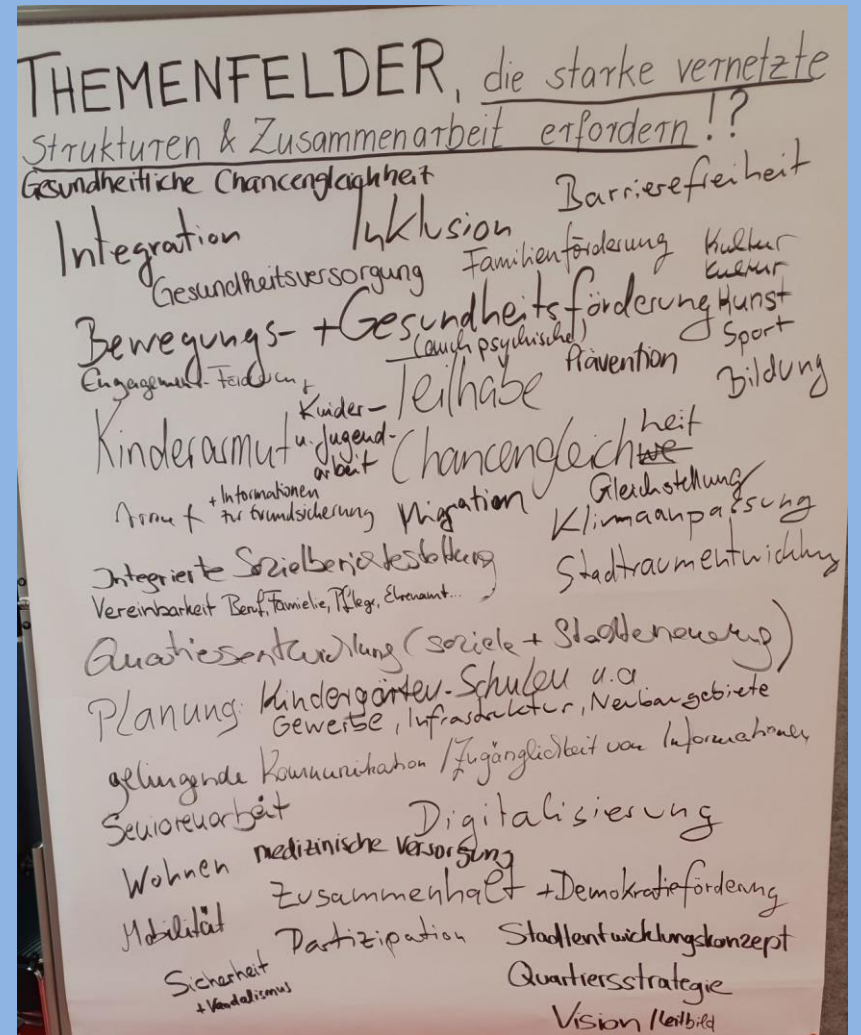 THEMENFELDER, die starke vernetzte
Strukturen & Zusammenarbeit erfordern!?
Gesundheitliche Chancengleichheit
Barrierefreiheit
Integration
Inklusion
Gesundheitsversorgung
Familienförderung
Kultur
Kultur
Bewegungs- + Gesundheitsförderung
Kunst
(auch psychische)
Sport
Engagement-Förderung
Teilhabe
Prävention
Bildung
Kinderarmut
Kinder-
u. Jugend-
arbeit
Chancengleichheit
Armut
+ Informationen
zur Grundsicherung
Migration
Gleichstellung
Klimaanpassung
Integrierte Sozialberichtestattung
Stadtraumentwicklung
Vereinbarkeit Beruf, Famielie, Pflege, Ehrenamt...
(soziele + Stadterneuerung)
Planung: Kindergärten-Schulen u.a
Gewerbe, Infrastruktur, Neubaugebiete
gelingende Kommunikation / Zugänglichkeit von Informationen
Seniorenarbeit
Digitalisierung
Wohnen
medizinische Versorgung
Zusammenhalt + Demokratieförderung
Mobilität
Partizipation
Stadtentwicklungskonzept
Sicherheit
+ Vandalismus
Quartiersstrategie
Vision / Leitbild